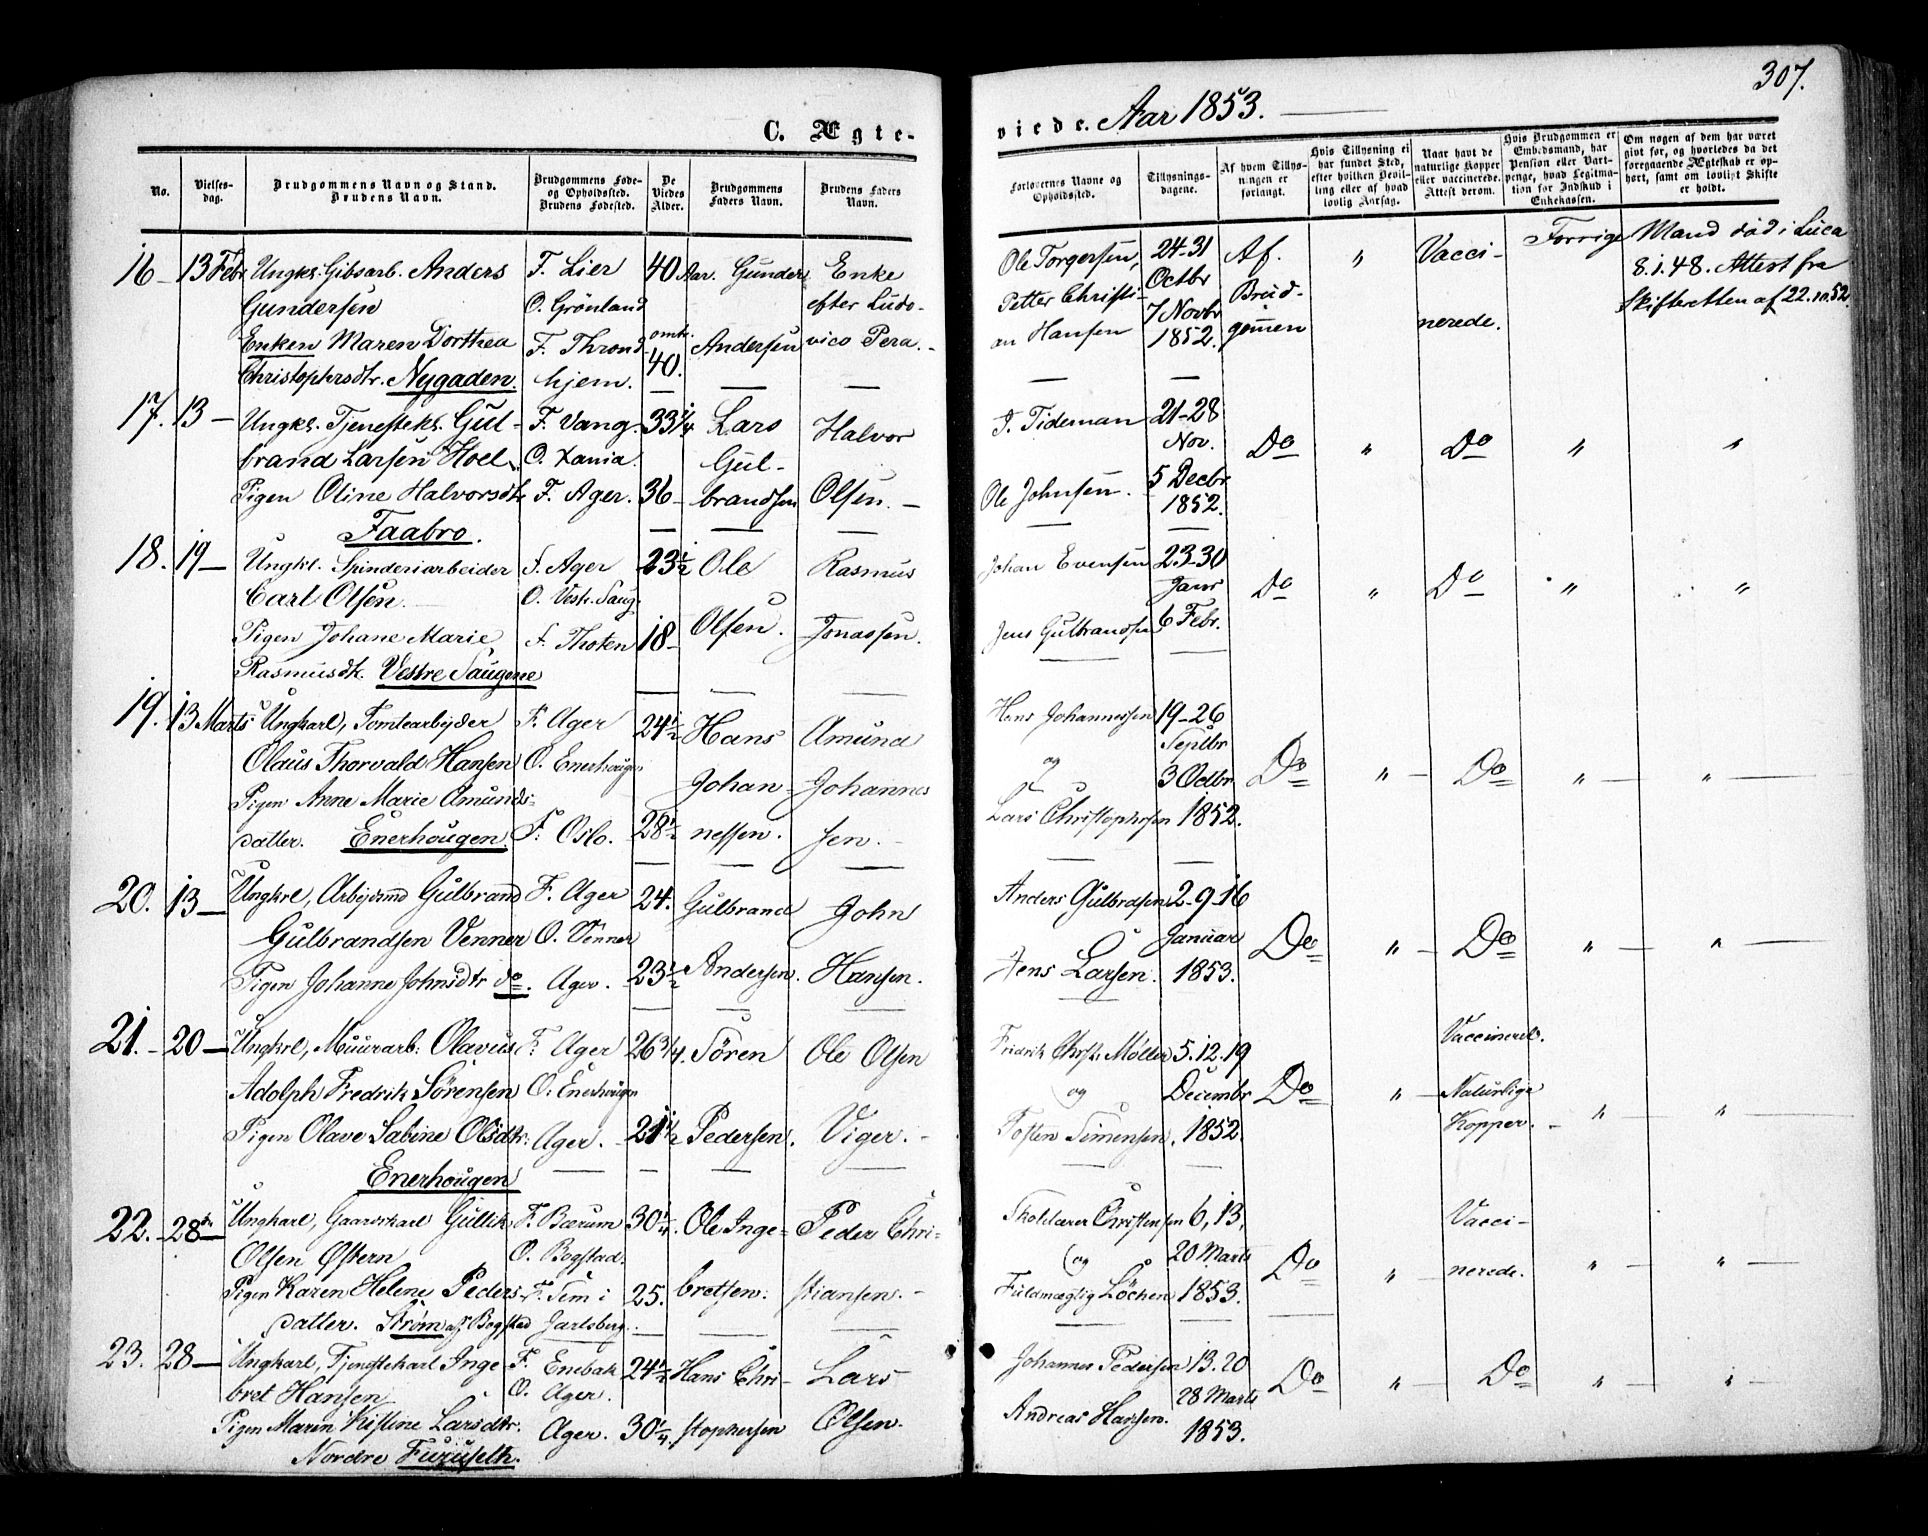 307.
C. Ægte-
viede. Aar 1853.
No.
Vielses-
dag.
Brudgommens Navn og Stand.
Brudens Navn.
Brudgommens Føde-
og Opholdssted.
Brudens Fødested.
De
Viedes
Alder.
Brudgommens
Faders Navn.
Brudens Faders
Navn.
Forlovernes Navne og
Opholdssted.
Tillysnings-
dagene.
Af hvem Tillys-
ningen er
forlangt.
Hvis Tillysning ei
har fundet Sted,
efter hvilken Bevil-
ling eller af hvad
lovlig Aarsag.
Naar havt de
naturlige Kopper
eller vaccinerede.
Attest derom.
Hvis Brudgommen er
Embedsmand, har
Pension eller Vart-
penge, hvad Legitima-
tion for Indskud i
Enkekassen.
Om nogen af dem har været
givt før, og hvorledes da det
foregaaende Ægteskab er op-
hørt, samt om lovligt Skifte
er holdt.
16 - 13 Febr. Ungk. Gibsarb. Anders
Gundersen
Enken Maren Dorthea
Christophersdtr. Nygaden.
F. Lier
O. Grönland
F. Thrond-
hjem.
40 Aar.
omtr.
40.
Gunder
Andersen
Enke
efter Ludo-
vico Pera. -
Ole Torgersen,
Petter Christi-
an Hansen
24-31
Octbr
7 Novbr
1852.
Af
Brud-
gommen
"
Vacci-
nerede.
Forrige Mand død i Luca
8.1.48. Attest fra
Skifteretten af 22.10.52.
17. 13 - Ungk. Tjenestek. Gul-
brand Larsen Hoel
Pigen Oline Halvorsdtr
Faabro.
F. Vang.
O. Xania.
F. Ager.
33 1/4
36 -
Lars
Gul-
brandsen
Halvor
Olsen. -
J. Tideman
Ole Johnsen.
21-28
Nov.
5 Decbr
1852.
Do " Do " "
18. 19 - Ungkl. Spinderiarbeider
Carl Olsen.
Pigen Johane Marie
Rasmusdtr. Vestre Saugene
F. Ager
O. Vestr. Saug.
F. Thoten
23 1/2
18 -
Ole
Olsen.
Rasmus
Jonassen.
Johan Evensen
Jens Gulbrandsen
23-30
Janr
6 Febr.
Do " Do " "
19. 13 Marts Ungkarl, Tomtearbejder
Olaus Thorvald Hansen
Pigen Anne Marie Amunds-
datter. Enerhougen.
F. Ager
O. Enerhougen
F. Oslo.
24 1/2
28 1/2
Hans
Johan-
nessen.
Amund
Johannes
sen. -
Hans Johannessen
og
Lars Christophersen
19-26
Septbr
3 Octbr.
1852.
Do " - Do " - " -
20. 13 - Ungkrl, Arbejdsmd Gulbrand
Gulbrandsen Venner
Pigen Johanne Johnsdtr do.
F. Ager
O. Venner
Ager.
24.
23 1/2
Gulbrand
Andersen.
John
Hansen.
Anders Gulbrdsen
Jens Larsen.
2-9-16
Januar
1853.
Do " - Do " - " -
21. - 20 - Ungkrl, Muurarb. Olavus
Adolph Fredrik Sörensen
Pigen Olave Sabine Olsdtr.
Enerhougen
F. Ager
O. Enerhougen
Ager.
26 3/4.
21 1/2
Sören
Pedersen.
Ole Olsen
Viger. -
Fredrik Chrst. Møller
og
Tosten Simensen.
5.12.19
Decembr
1852.
Do " -
Vaccinered.
Naturlige
Kopper. -
" - " -
22. - 28 - Ungkarl, Gaardskarl Gullik
Olsen Østern
Pigen Karen Helene Peders-
datter. Strøm af Bogstad
F. Bærum
O. Bogstad.
F. Sem i
Jarlsberg.
30 1/4.
25.
Ole Inge-
bretsen.
Peder Chri-
stiansen. -
Skolelærer Christensen
og
Fuldmægtig Löchen
6, 13,
20 Marts
1853.
Do " -
Vacci-
nerede.
" - " -
23. 28 - Ungkarl, Tjenestekarl Inge-
bret Hansen
Pigen Maren Kistine Larsdtr.
Nordre Furuseth.
F. Enebak
O. Ager.
Ager.
24 1/2
30 1/4.
Hans Chri-
stophersen
Lars
Olsen.
Johannes Pedersen
Andreas Hansen.
13. 20
28 Marts
1853.
Do " - Do " - " -